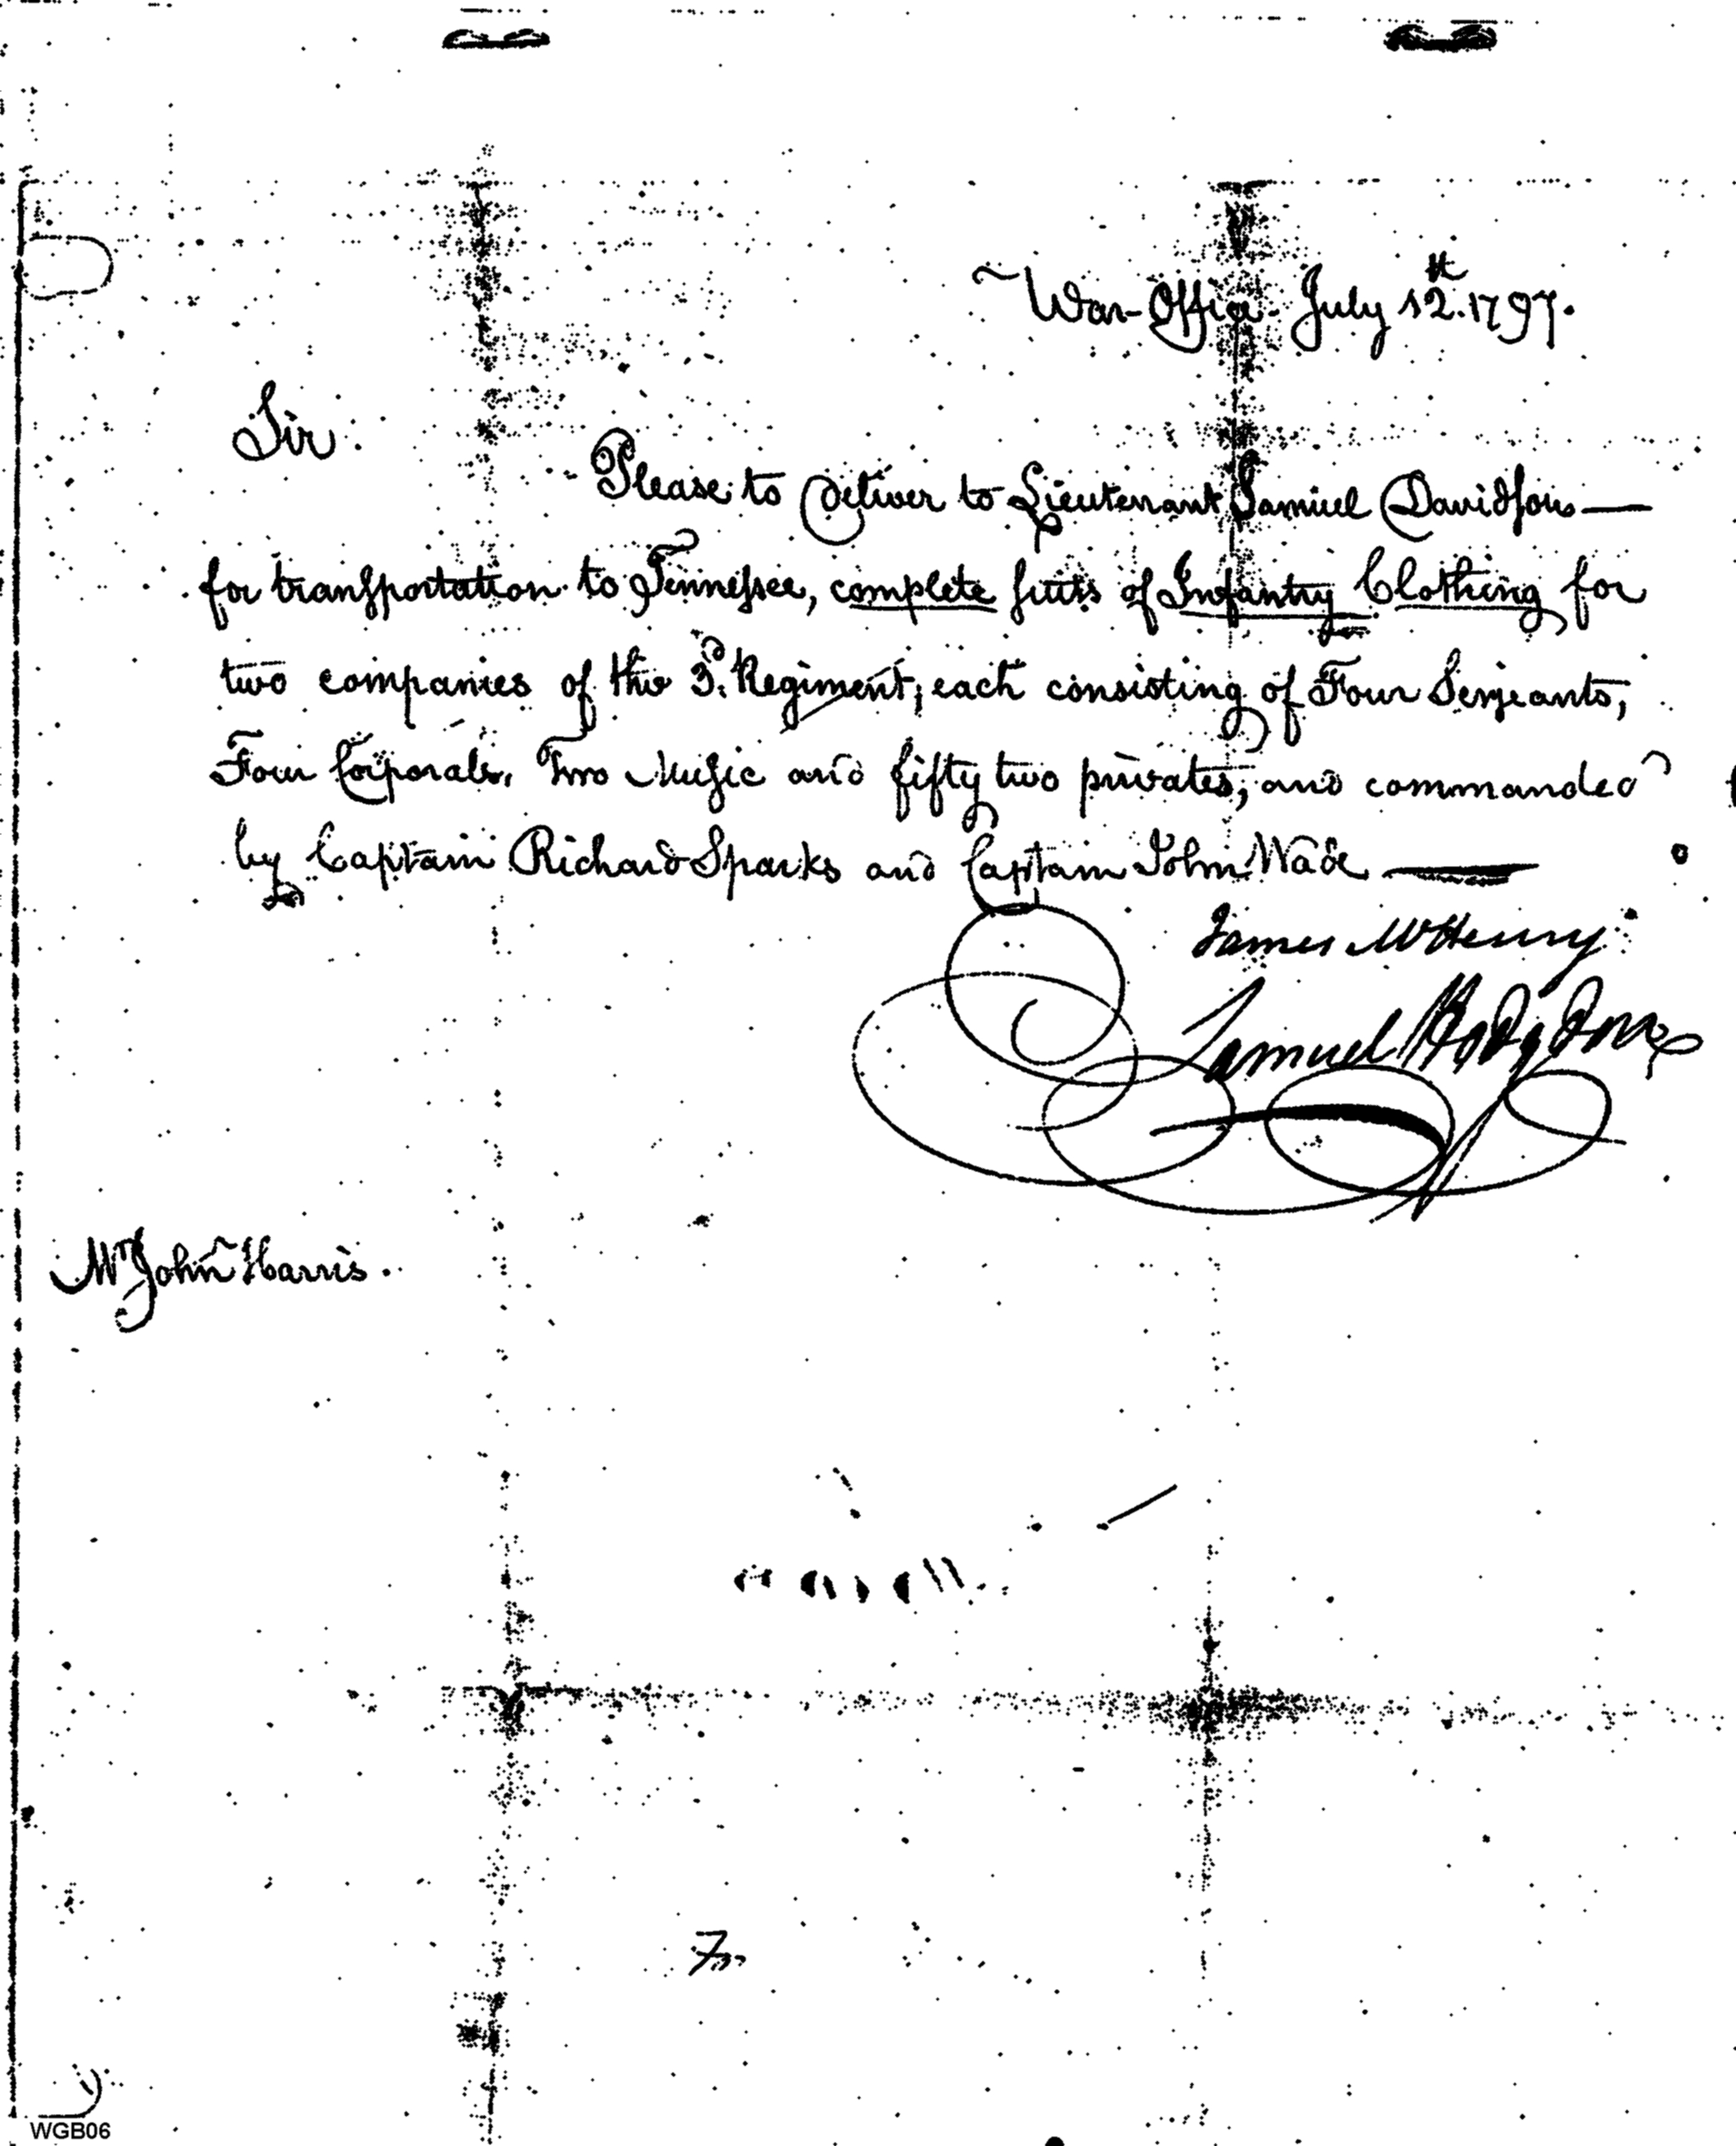 War-Office July 12th. 1797.
Sir:
Please to deliver to Lieutenant Samuel Davidson —
for transportation to Tennessee, complete suits of Infantry Clothing for
two companies of the 3d. Regiment; each consisting of Four Serjeants,
Four Corporals, Two Music and fifty two privates, and commanded
by Captain Richard Sparks and Captain John Wade —
James McHenry
Samuel Hodgdon
Mr John Harris.
WGB06